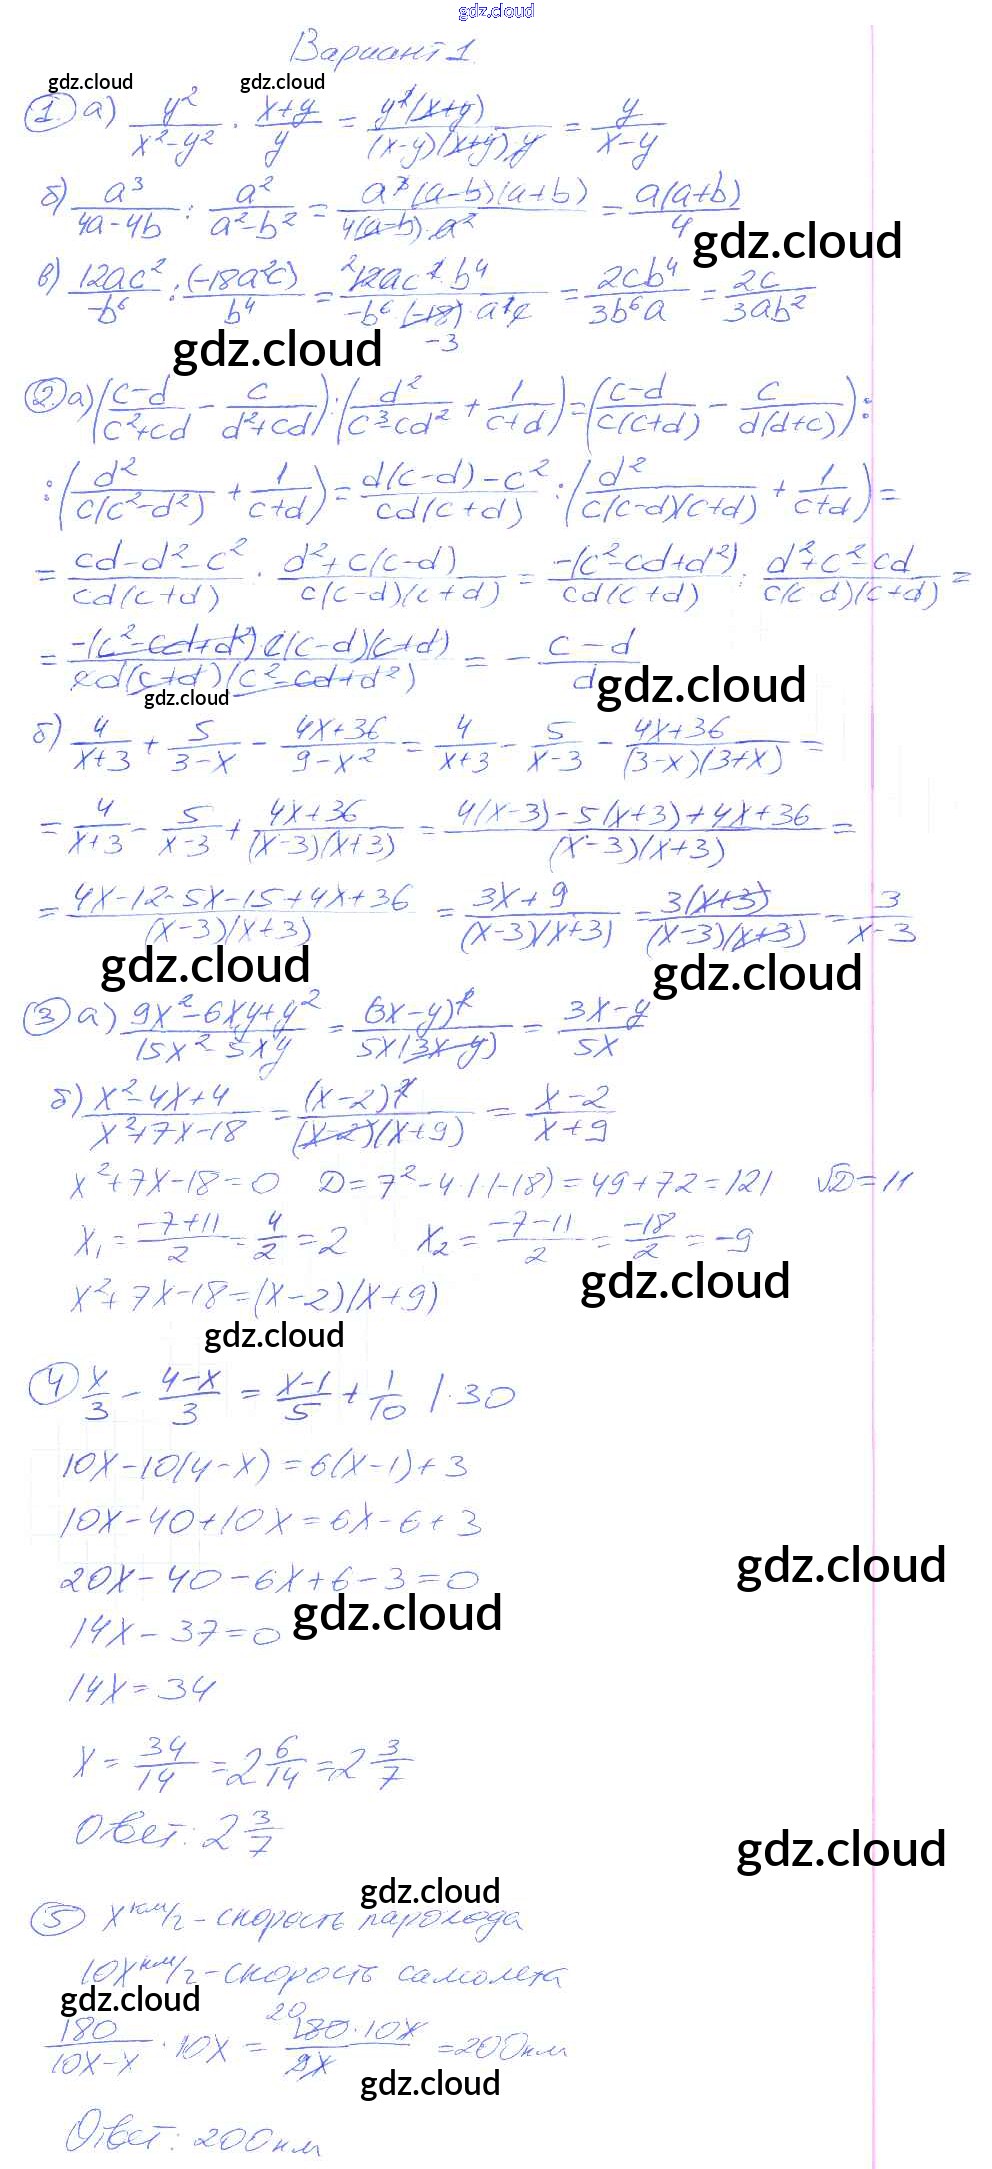 gdz.cloud
Вариант 1.
gdz.cloud gdz.cloud
1. а) y²/(x²-y²) · (x+y)/y = y²(x+y)/((x-y)(x+y)y) = y/(x-y)
б) a³/(4a-4b) : a²/(a²-b²) = a³(a-b)(a+b)/(4(a-b)·a²) = a(a+b)/4
gdz.cloud
в) 12ac²/(-b⁶) : (-18a²c)/b⁴ = 12ac²·b⁴/(-b⁶·(-18)·a²c) = 2cb⁴/(3b⁶a) = 2c/(3ab²)
2 -3
gdz.cloud
2. а) ((c-d)/(c²+cd) - c/(d²+cd)) : (d²/(c³-cd²) + 1/(c+d)) = ((c-d)/(c(c+d)) - c/(d(d+c))) :
: (d²/(c(c²-d²)) + 1/(c+d)) = (d(c-d)-c²)/(cd(c+d)) : (d²/(c(c-d)(c+d)) + 1/(c+d)) =
= (cd-d²-c²)/(cd(c+d)) : (d²+c(c-d))/(c(c-d)(c+d)) = -(c²-cd+d²)/(cd(c+d)) : (d²+c²-cd)/(c(c-d)(c+d)) =
= -(c²-cd+d²)·c(c-d)(c+d)/(cd(c+d)(c²-cd+d²)) = - (c-d)/d
gdz.cloud
gdz.cloud
б) 4/(x+3) + 5/(3-x) - (4x+36)/(9-x²) = 4/(x+3) - 5/(x-3) - (4x+36)/((3-x)(3+x)) =
= 4/(x+3) - 5/(x-3) + (4x+36)/((x-3)(x+3)) = (4(x-3)-5(x+3)+4x+36)/((x-3)(x+3)) =
= (4x-12-5x-15+4x+36)/((x-3)(x+3)) = (3x+9)/((x-3)(x+3)) = 3(x+3)/((x-3)(x+3)) = 3/(x-3)
gdz.cloud gdz.cloud
3 а) (9x²-6xy+y²)/(15x²-5xy) = (3x-y)²/(5x(3x-y)) = (3x-y)/(5x)
б) (x²-4x+4)/(x²+7x-18) = (x-2)²/((x-2)(x+9)) = (x-2)/(x+9)
x²+7x-18=0 D=7²-4·1·(-18)=49+72=121 √D=11
x₁ = (-7+11)/2 = 4/2 = 2 x₂ = (-7-11)/2 = -18/2 = -9
gdz.cloud
x²+7x-18=(x-2)(x+9)
gdz.cloud
4 x/3 - (4-x)/3 = (x-1)/5 + 1/10 |·30
10x-10(4-x)=6(x-1)+3
10x-40+10x=6x-6+3
gdz.cloud
20x-40-6x+6-3=0
gdz.cloud
14x-37=0
14x=34
x = 34/14 = 2 6/14 = 2 3/7
Ответ: 2 3/7
gdz.cloud
gdz.cloud
5 x км/ч - скорость парохода
10x км/ч - скорость самолета
gdz.cloud
180/(10x-x) · 10x = 180·10x/(9x) = 200км
20
gdz.cloud
Ответ: 200км